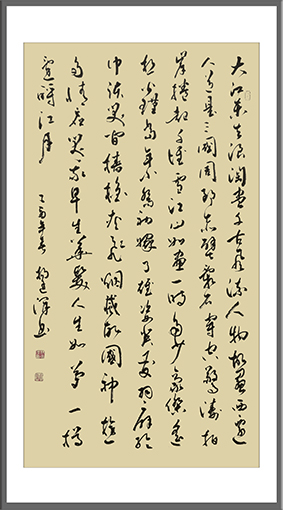 大江東去浪淘盡千古風流人物故壘西邊
人道是三國周郎赤壁亂石穿空驚濤拍
岸捲起千堆雪江山如畫一時多少豪傑遙
想公瑾當年小喬初嫁了雄姿英發羽扇綸
巾談笑間檣櫓灰飛煙滅故國神遊
多情應笑我早生華髮人生如夢一樽
還酹江月